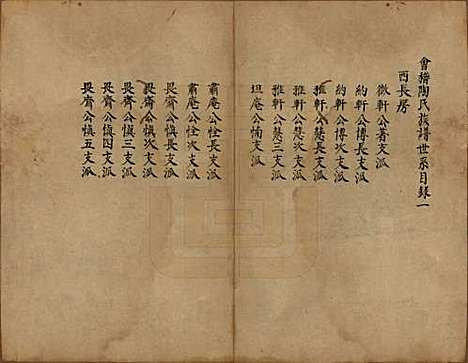 會稽陶氏族譜世系目錄一
西長房
微軒公著支派
約軒公博長支派
約軒公博次支派
雅軒公慧長支派
雅軒公慧次支派
雅軒公慧三支派
坦庵公恂支派
肅庵公恮長支派
肅庵公恮次支派
畏齋公慎長支派
畏齋公慎次支派
畏齋公慎三支派
畏齋公慎四支派
畏齋公慎五支派